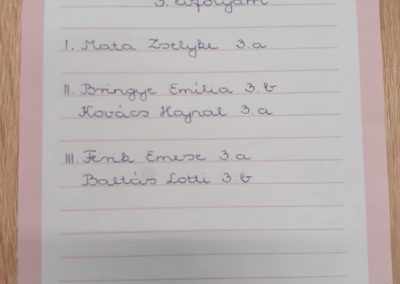 3. évfolyam
I. Mata Zselyke 3.a
II. Bringye Emília 3.b
Kovács Hajnal 3.a
III. Ferik Emese 3.a
Baltás Lotti 3.b